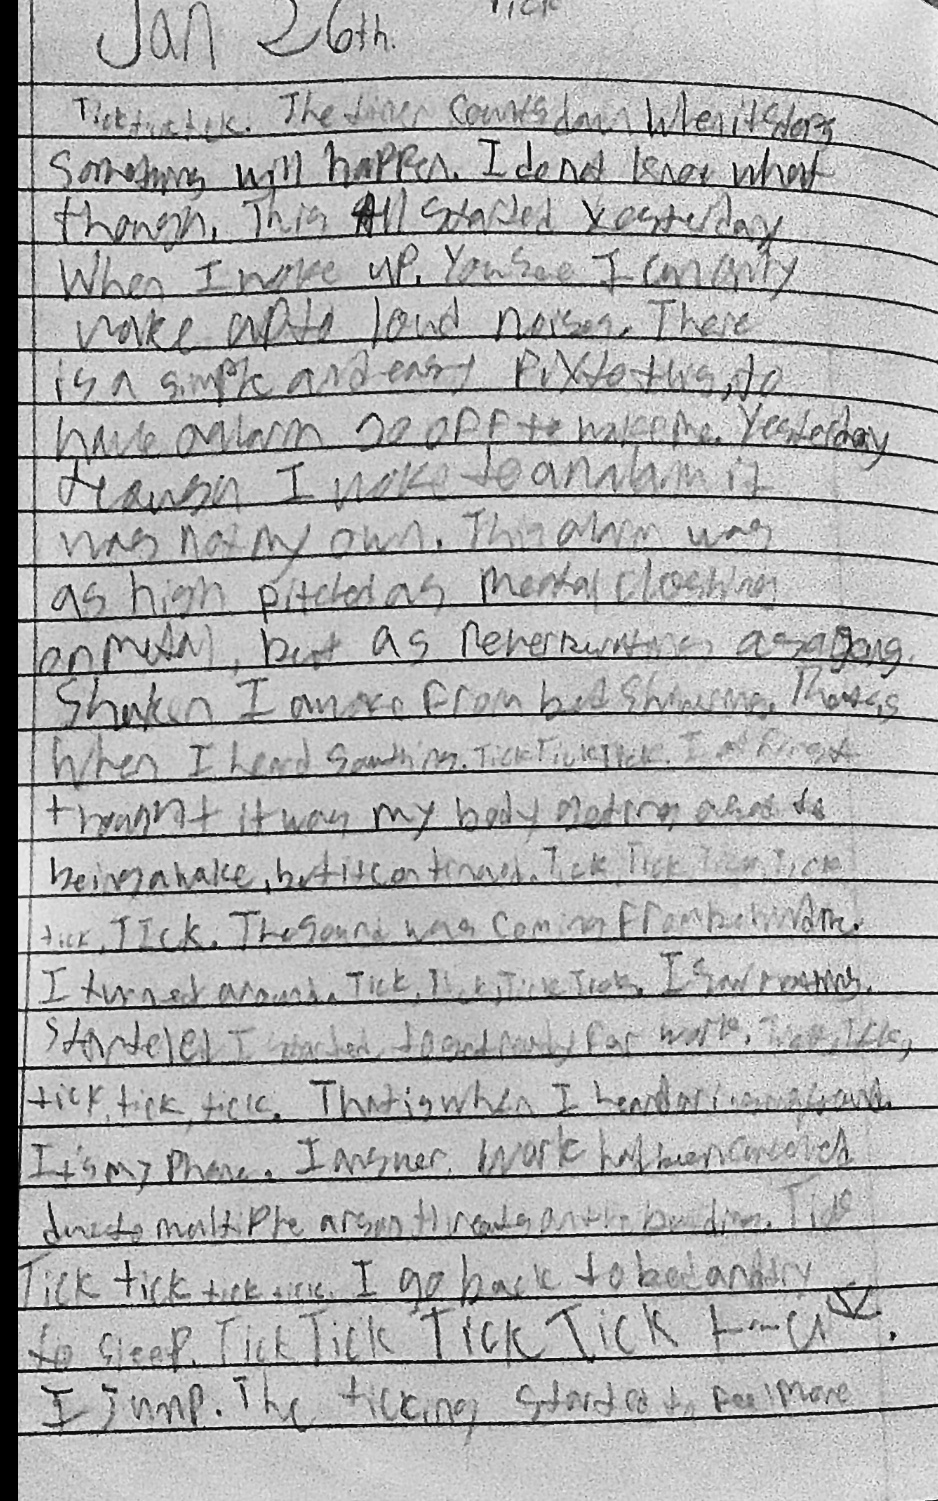 Tick
Jan 26th.
Tick tick tick. The timer counts down When it stops
Something will happen. I do not know what
though. This All started yesterday
When I woke up. You see I can only
wake up to loud noises. There
is a simple and easy fix to this, to
have an alarm go off to wake me. Yesterday
though I woke to an alarm it
was not my own. This alarm was
as high pitched as mental clashing
on metal, but as reverberating as a gong.
Shaken I awoke from bed shivering. That is
When I heard something. Tick Tick Tick. I at first
thought it was my body to
being awake, but it continued. Tick, Tick, Tick, Tick
tick, TIck. The sound was coming from behind me.
I turned around. Tick, Tick, Tick Tick. I saw nothing.
Started I started to get ready for work. Tick, Tick,
tick, tick, tick. That is when I heard a ringing sound.
It's my phone. I answer. Work had been canceled
due to multiple arson threats on the building. Tick
Tick tick tick tick. I go back to bed and try
to sleep. Tick Tick Tick Tick
I jump. The ticking started to feel more